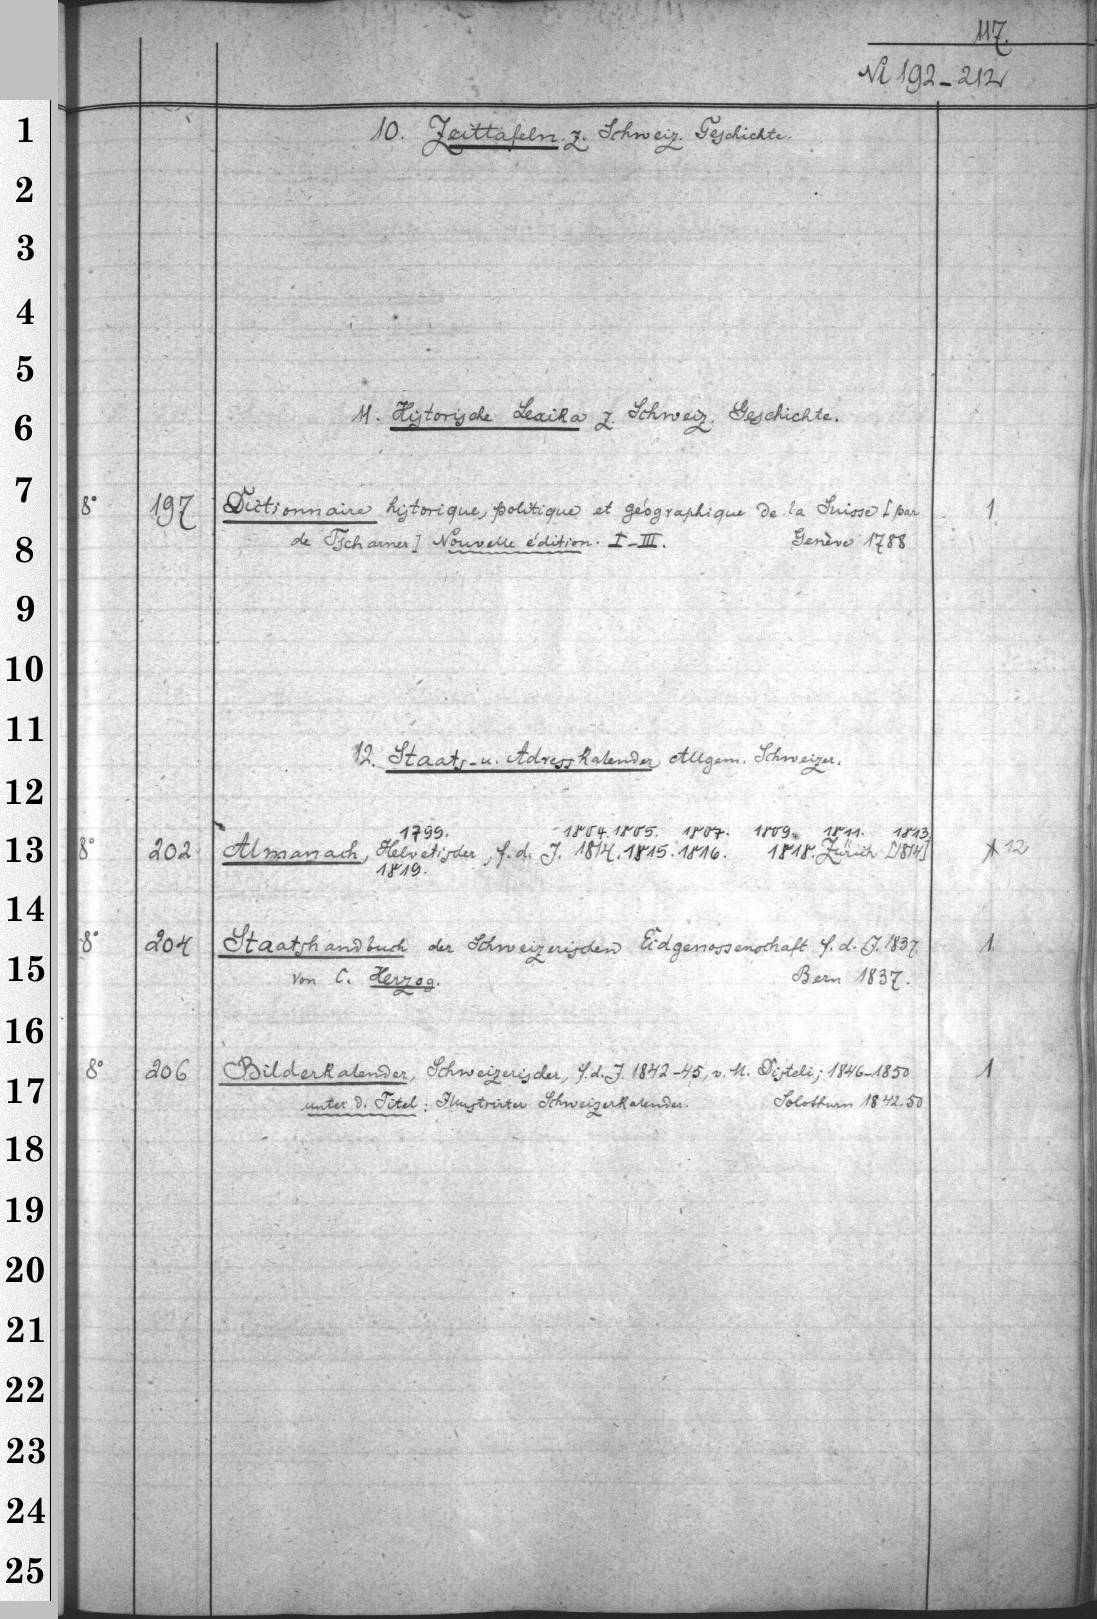 117.
Nl 192-212
1
10. Zeittafeln z. Schweiz. Geschichte.
2
3
4
5
6
11. Historische Lexika z. Schweiz. Geschichte.
7
8° 197 Dictionnaire historique, politique et géographique de la Suisse [par 1
8
de Tscharner] Nouvelle édition. I-III. Genève 1788
9
10
11
12. Staats- u. Adresskalender, Allgem. Schweizer.
12
1799. 1804. 1805. 1807. 1809. 1811. 1813
13
8° 202 Almanach, Helvetischer, f. d. J. 1814. 1815. 1816. 1818. Zürich [1814] 12
1819.
14
8° 204 Staatshandbuch der Schweizerischen Eidgenossenschaft f. d. J. 1837 1
15
von C. Herzog. Bern 1837.
16
8° 206 Bilderkalender, Schweizerischer, f. d. J. 1842-45, v. M. Disteli; 1846-1850 1
17
unter d. Titel: Illustrirter Schweizerkalender. Solothurn 1842.50
18
19
20
21
22
23
24
25